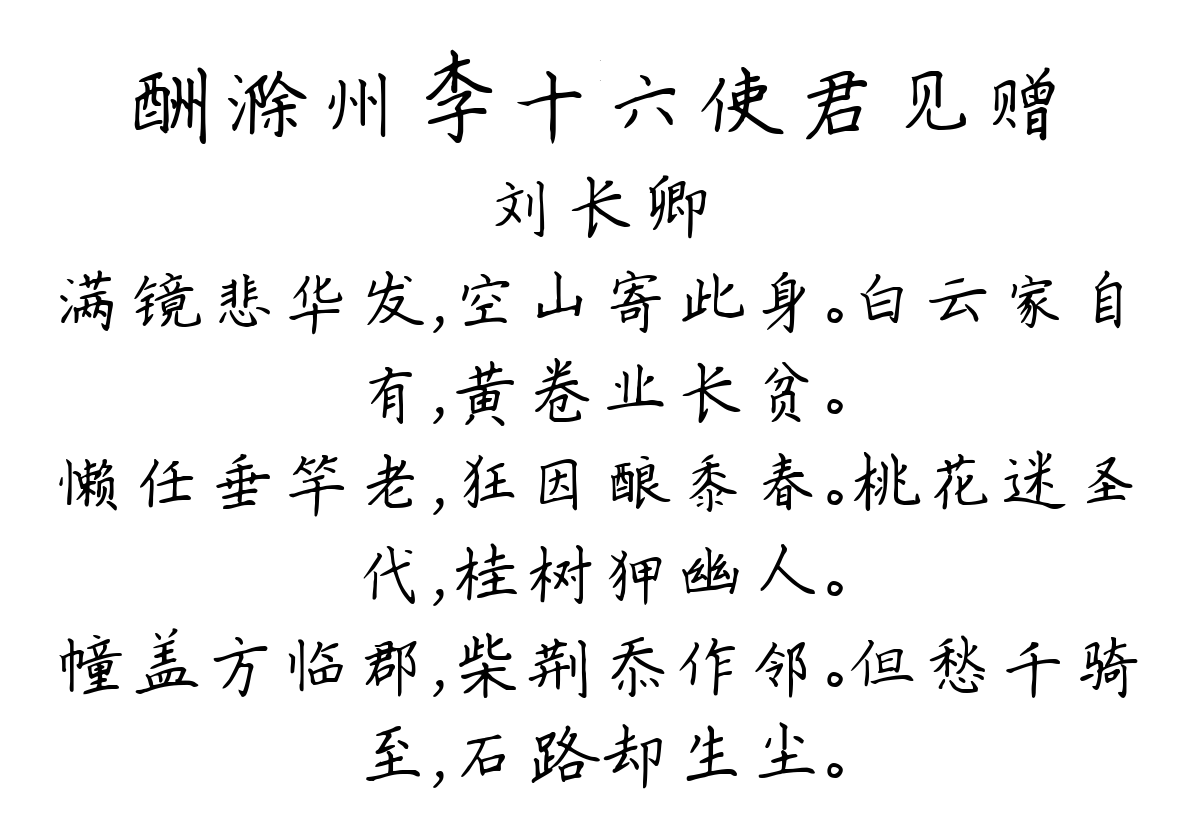 酬滁州李十六使君见赠
刘长卿
满镜悲华发,空山寄此身。白云家自
有,黄卷业长贫。
懒任垂竿老,狂因酿黍春。桃花迷圣
代,桂树狎幽人。
幢盖方临郡,柴荆忝作邻。但愁千骑
至,石路却生尘。